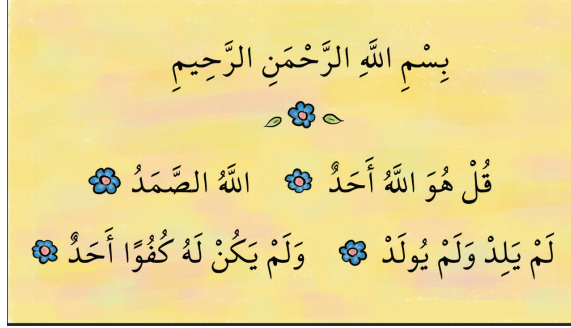 بِسْمِ اللَّهِ الرَّحْمَنِ الرَّحِيمِ
قُلْ هُوَ اللَّهُ أَحَدٌ اللَّهُ الصَّمَدُ
لَمْ يَلِدْ وَلَمْ يُولَدْ وَلَمْ يَكُنْ لَهُ كُفُوًا أَحَدٌ